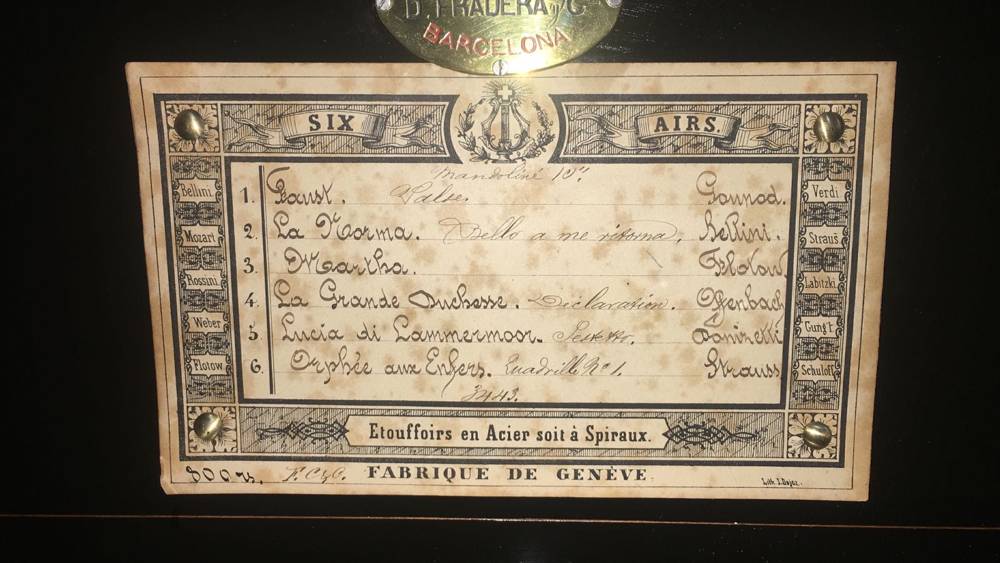 D. FRADERA y Cª
BARCELONA
SIX AIRS.
Mandoline 10"
1. Faust. Valse. Gounod.
2. La Norma. Bello a me ritorna. Bellini.
3. Martha. Flotow
4. La Grande Duchesse. Declaration. Offenbach
5 Lucia di Lammermoor. Sestetto. Donizetti
6. Orphée aux Enfers. Quadrille No 1. Strauss
3443.
Bellini
Mozart
Rossini
Weber
Flotow
Verdi
Strauß
Labitzki
Gung'l
Schuloff
Etouffoirs en Acier soit à Spiraux.
FABRIQUE DE GENÈVE